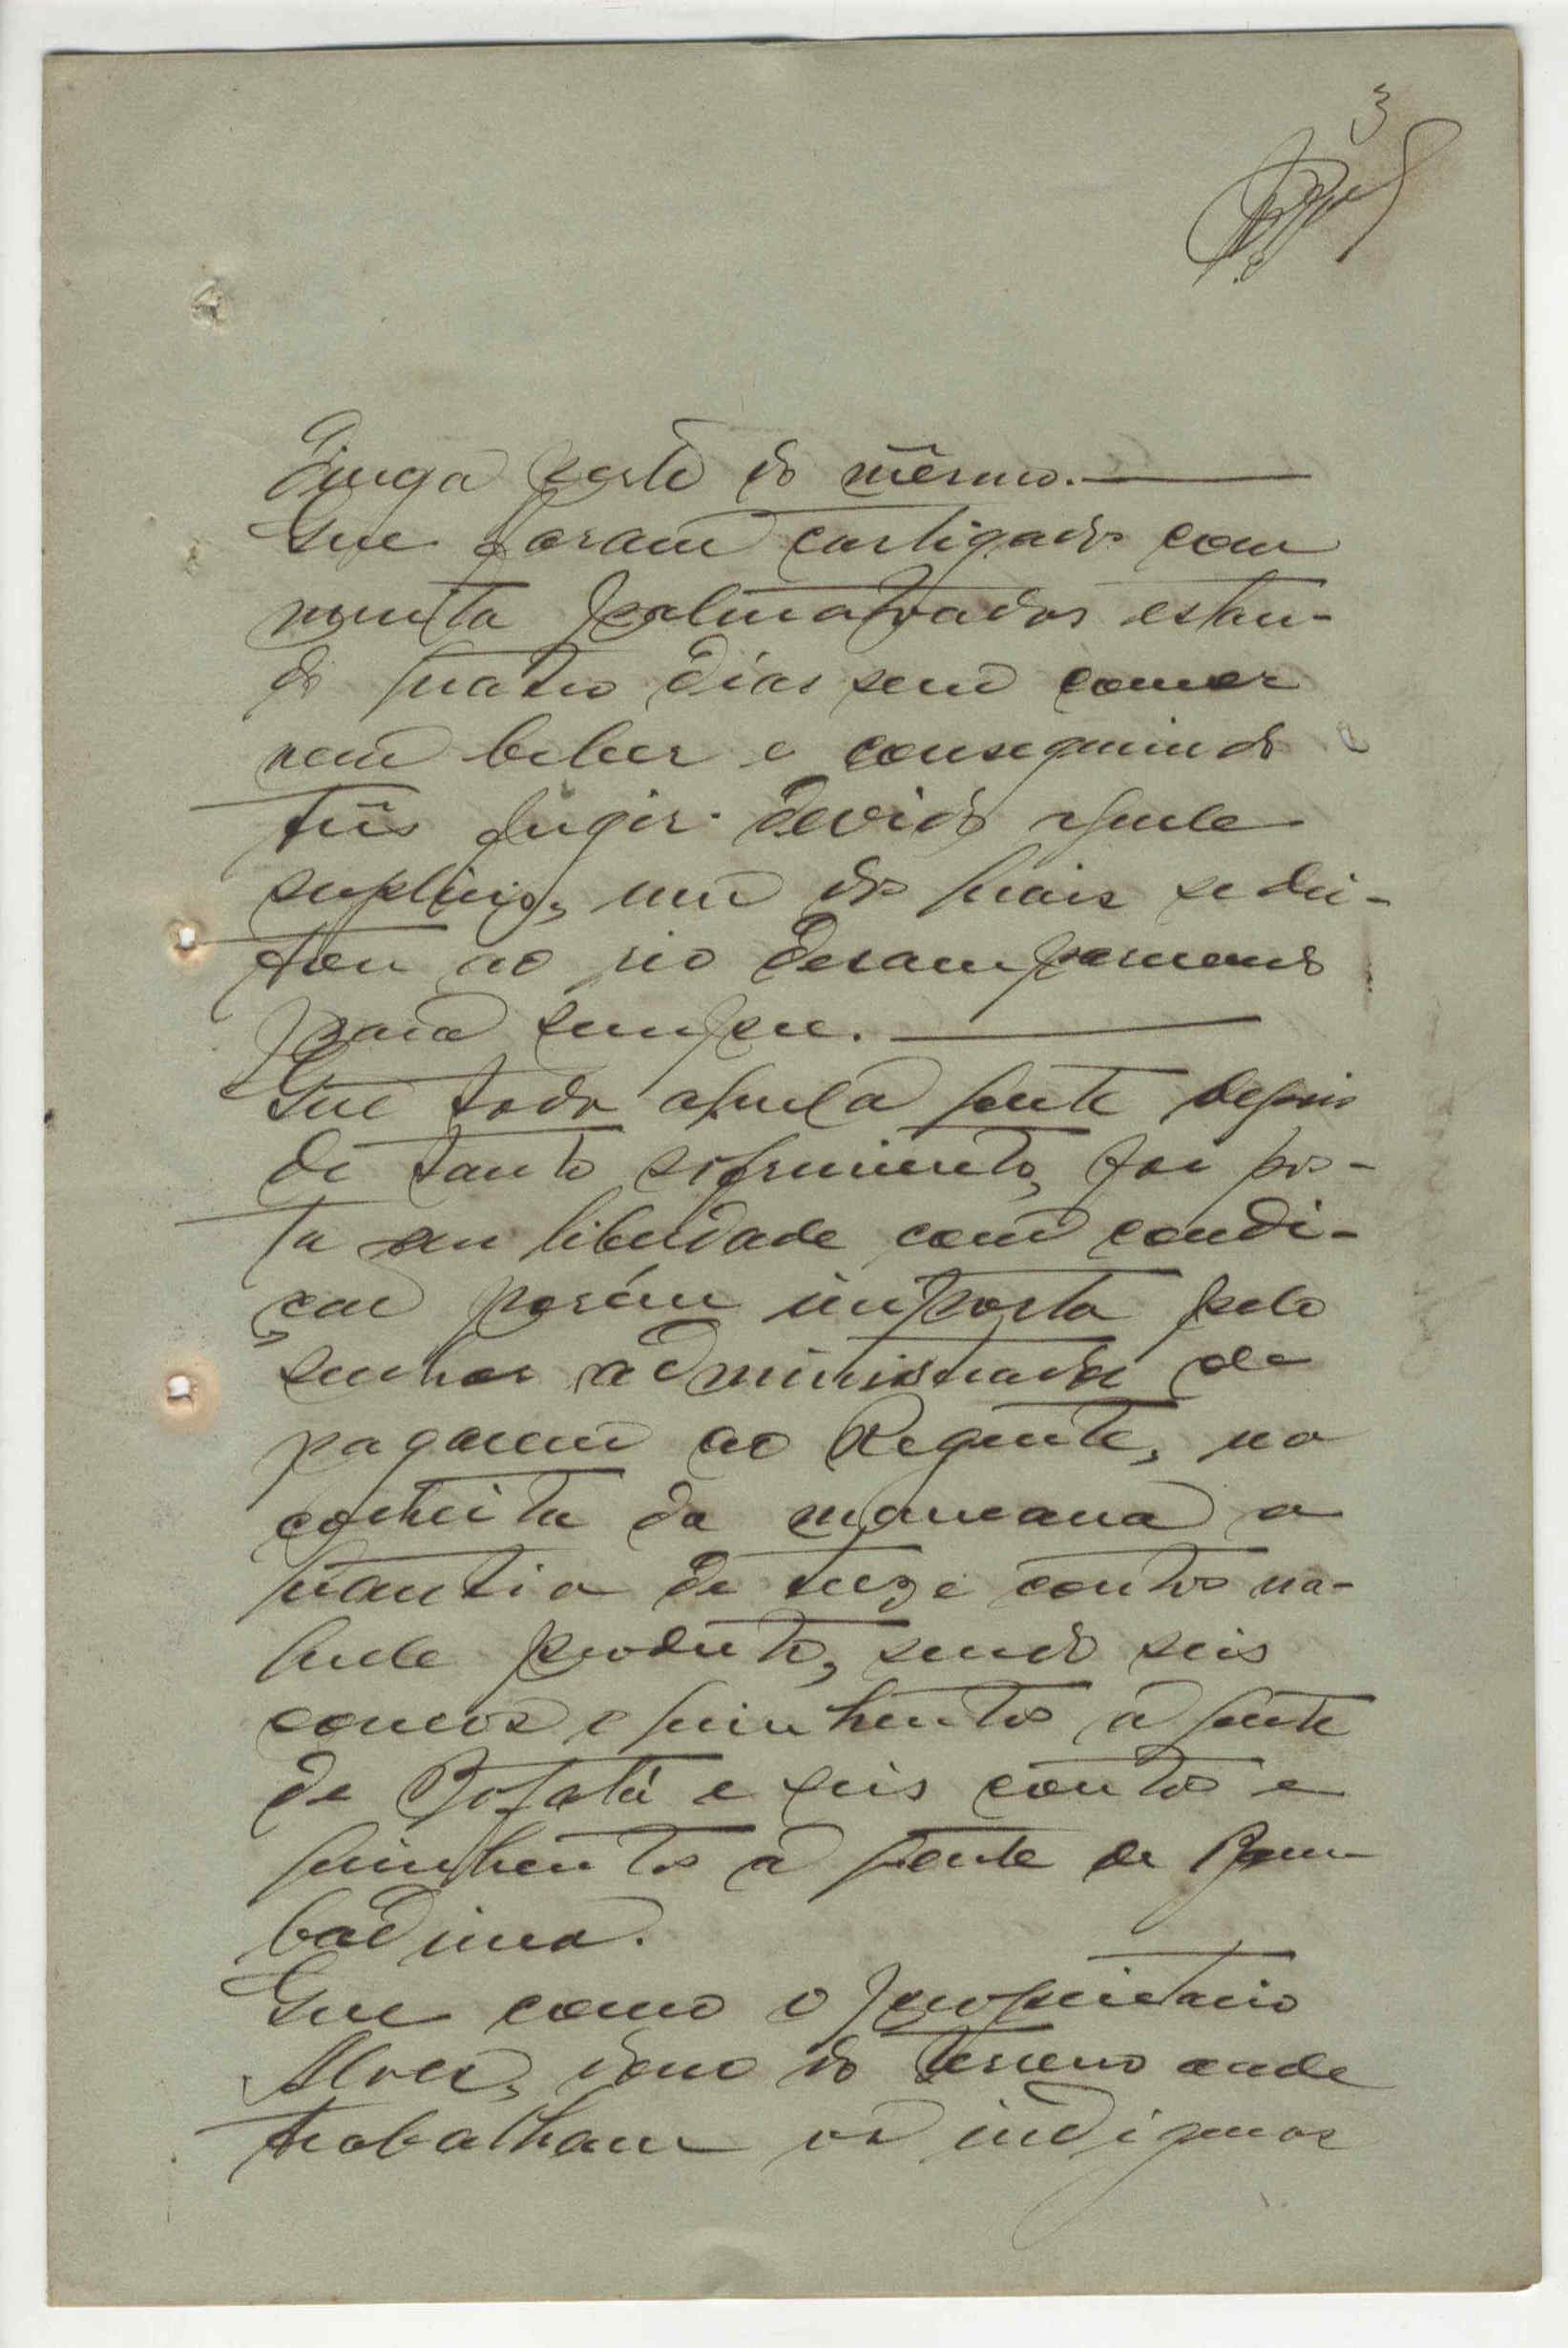 3
perto do mesmo.
Que foram castigados com
muita palmatoadas estan-
do quatro dias sem comer
nem beber e conseguindo
três fugir devido aquele
suplicio, um dos quais se dei-
tou ao rio
para sempre.
Que toda aquela gente depois
de tanto sofrimento, foi pos-
ta em liberdade com condi-
ção porém imposta pelo
senhor administrador de
pagarem ao Regente, na
colheita da mancarra a
quantia de treze contos na-
quele produto, sendo seis
contos e quinhentos a gente
de e seis contos e
quinhentos a gente de Bam
badinca.
Que como o proprietario
Alves, dono do terreno onde
trabalham os indigenas